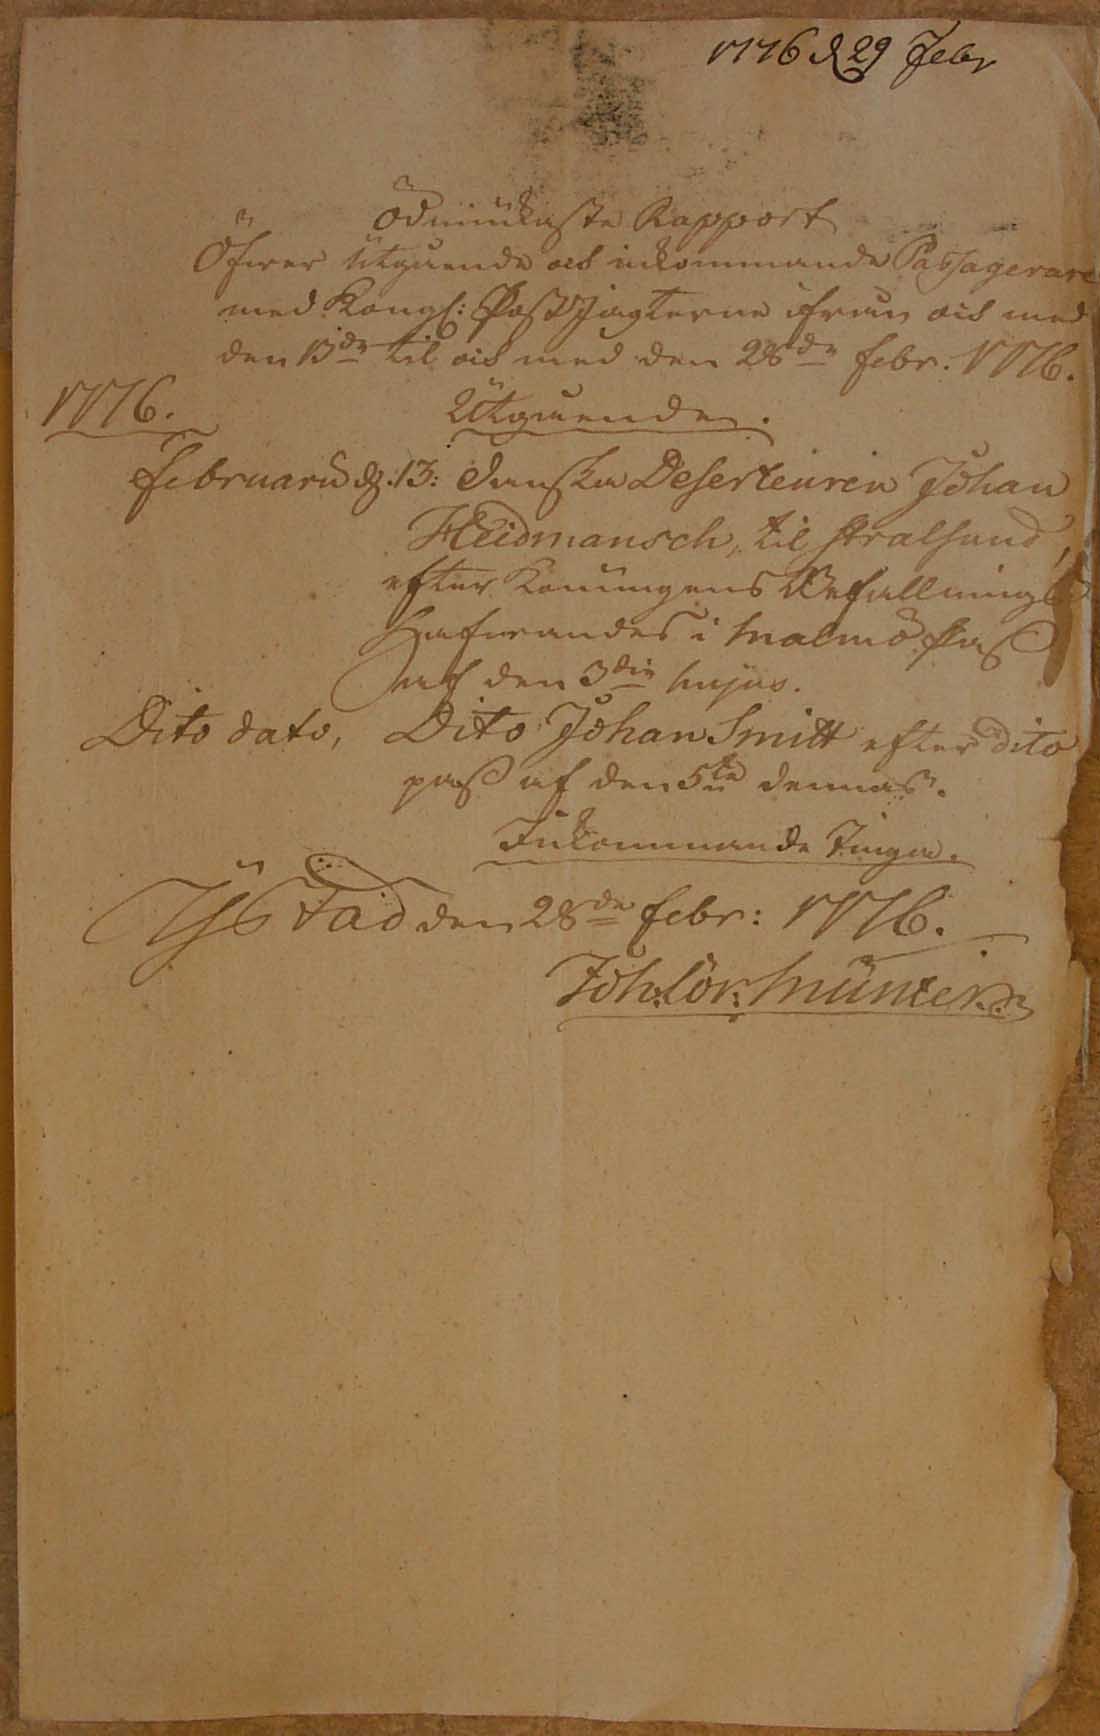 1776 d 29 Febr
Ödmiukaste Rapport
Öfwer Utgående och inkommande Passagerare
med Kongl: Post Jagterne ifrån och med
den 13de til och med den 28de Febr. 1776.
1776.
Utgående.
Februarii d. 13: Danska Deserteuren Johan
Heidmansch, til Stralsund,
efter Konungens Befallning
Hafwandes i Malmö Pass
af den 3die hujus.
Dito dato, Dito Johan Smitt efter dito
pass af den 5te dennas.
Inkommande Inga.
Ystad den 28de Febr: 1776.
Joh: Lor: Münter